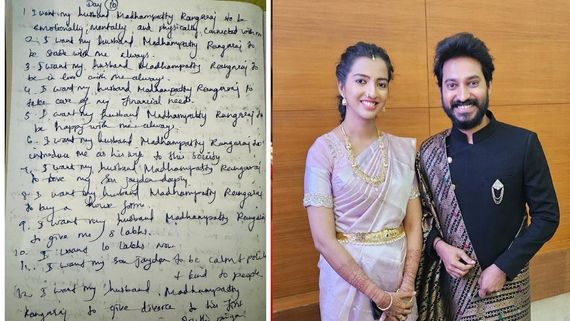 Day 10
1. I want my husband Madhampatty Rangaraj to be
emotionally, mentally and physically, connected with me
2. I want my husband Madhampatty Rangaraj to
be with me always.
3. I want my husband Madhampatty Rangaraj to
be in love with me always.
4. I want my husband Madhampatty Rangaraj to
take care of my financial needs.
5. I want my husband Madhampatty Rangaraj to
be happy with me always.
6. I want my husband Madhampatty Rangaraj to
introduce me as his wife to this society
7. I want my husband Madhampatty Rangaraj
to love my son jaydon deeply
8. I want my husband Madhampatty Rangaraj
to buy a house
9. I want my husband Madhampatty Rangaraj
to give me 5 lakhs.
10. I want 10 lakhs now.
11. I want my son jaydon to be calm & polite
& kind to people
12. I want my husband Madhampatty
Rangaraj to give divorce to his first